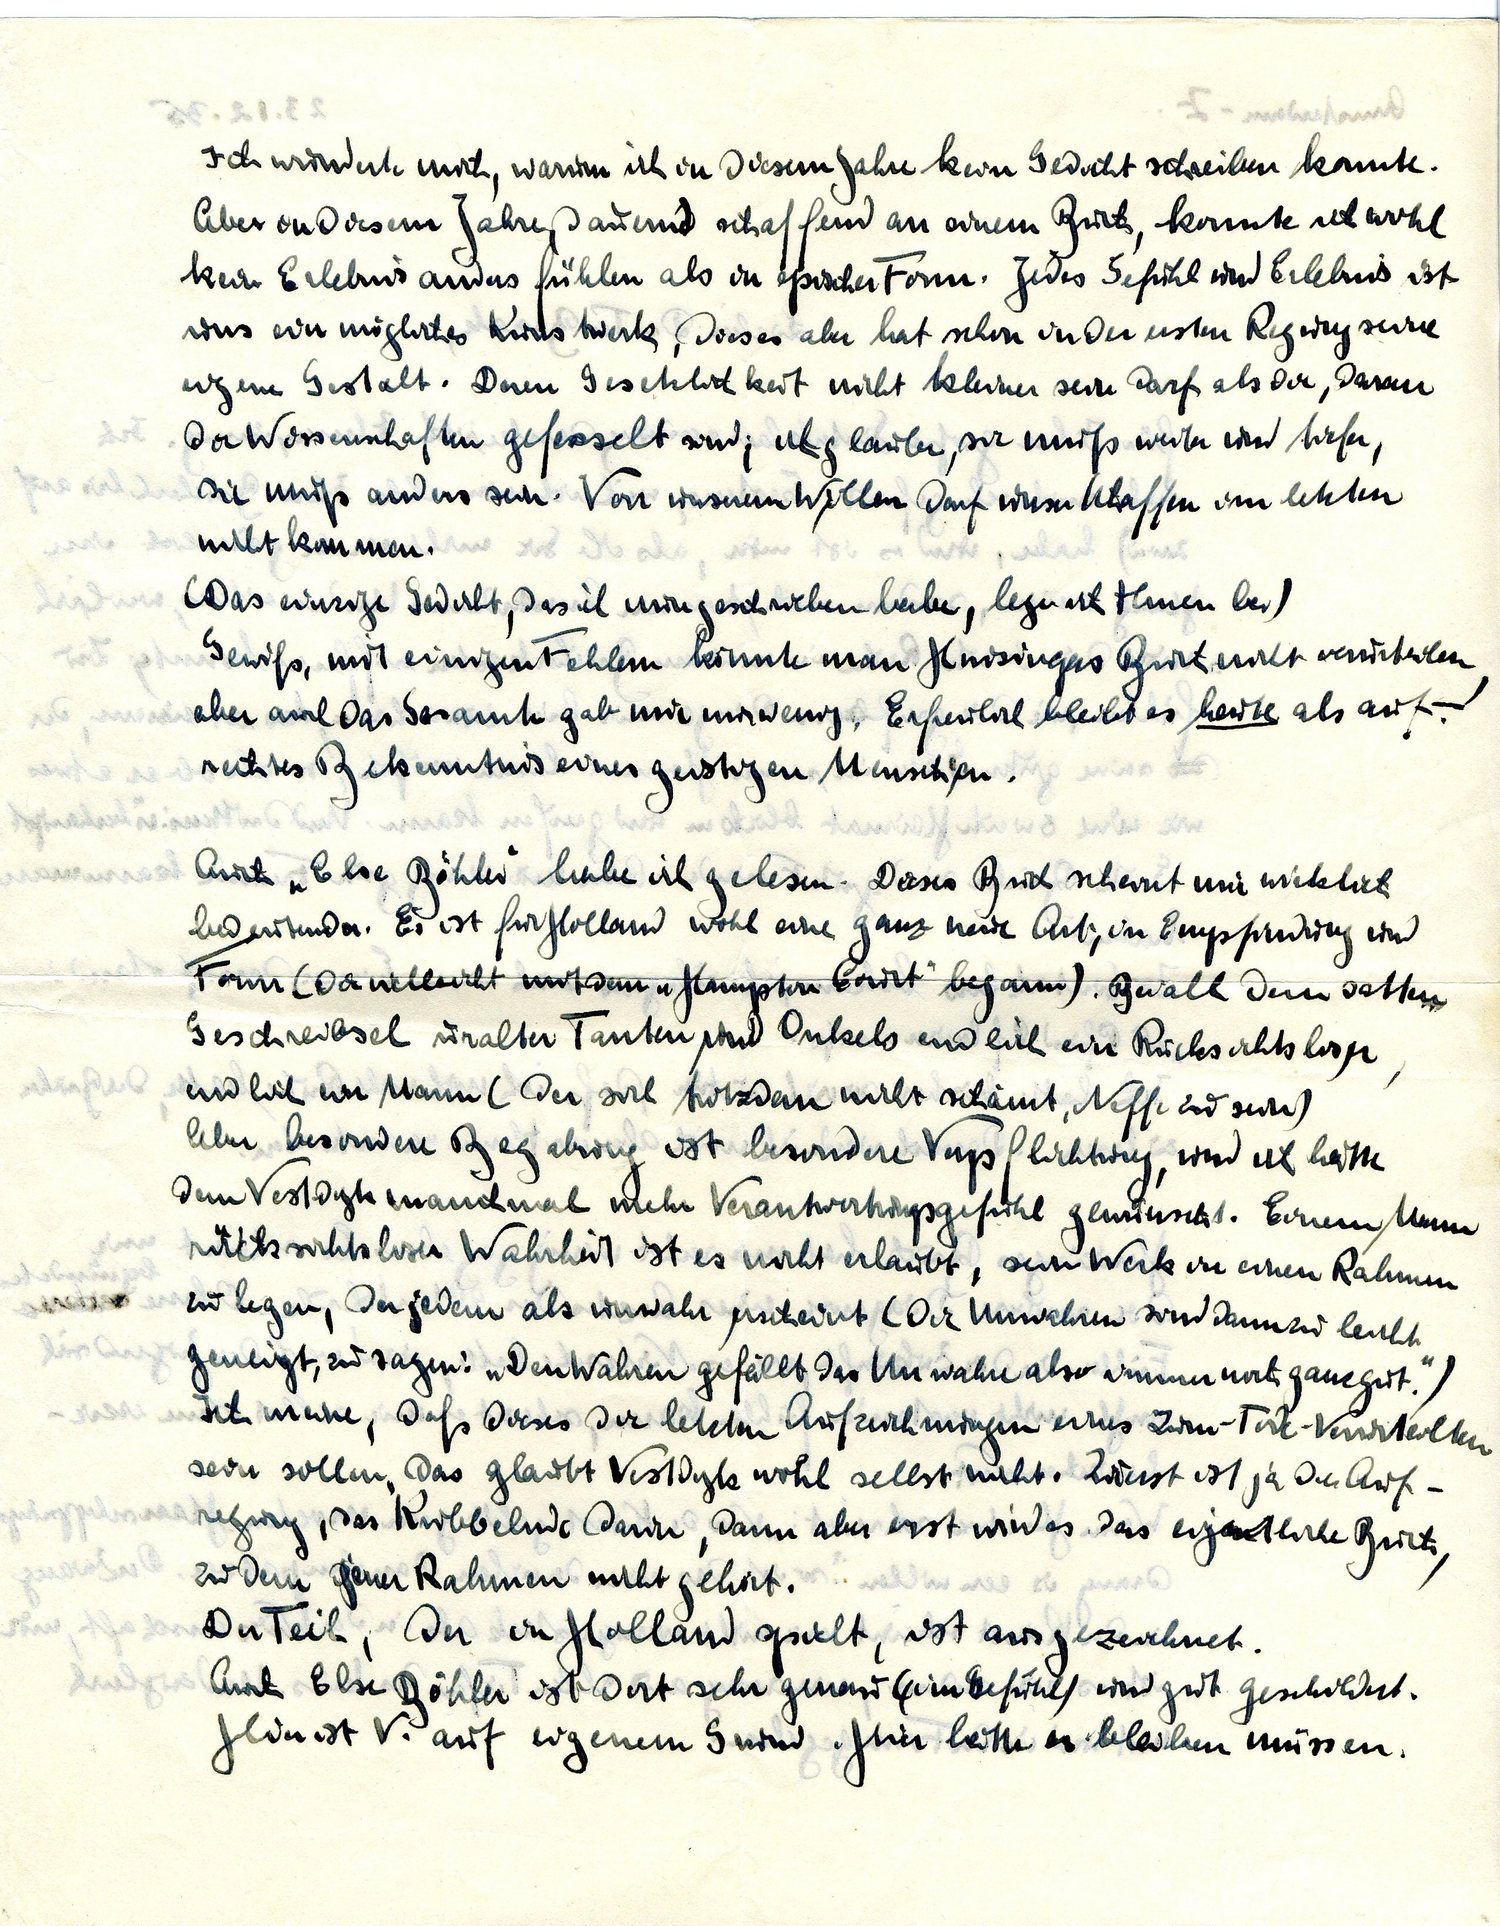 Ich wunderte mich, warum ich in diesem Jahre kein Gedicht schreiben konnte.
Aber in diesem Jahre, dauernd schaffend an einem Buch, konnte ich wohl
kein Erlebnis anders fühlen als in epischer Form. Jedes Gefühl und Erlebnis ist
uns ein mögliches Kunstwerk, dieses aber hat schon in der ersten Regung seine
eigene Gestalt. Deren Gesetzlichkeit nicht kleiner sein darf als die, daran
die Wissenschaften gefesselt sind; ich glaube, sie muß weiter und tiefer,
sie muß anders sein. Von unserem Willen darf unser Schaffen im letzten
nicht kommen.
(Das einzige Gedicht, das ich nun geschrieben habe, lege ich Ihnen bei)
Gewiß, mit einigen Fehlern könnte man Huizingas Buch nicht verurteilen,
aber auch das Gesamte gab mir nur wenig. Erfreulich bleibt es heute als auf-
rechtes Bekenntnis eines geistigen Menschen.
Auch „Else Böhler“ habe ich gelesen. Dieses Buch scheint mir wirklich
bedeutender. Es ist für Holland wohl eine ganz neue Art, in Empfindung und
Form (die vielleicht mit dem „Hampton Court“ begann). Bei all dem satten
Geschreibsel uralter Tanten und Onkels endlich ein Rücksichtsloser,
endlich ein Mann (der sich trotzdem nicht schämt, Neffe zu sein)
Aber besondere Begabung ist besondere Verpflichtung, und ich hätte
dem Vestdyk manchmal mehr Verantwortungsgefühl gewünscht. Einem Mann
rücksichtsloser Wahrheit ist es nicht erlaubt, sein Werk in einen Rahmen
zu legen, der jedem als unwahr erscheint (Die Unwahren sind dann zu leicht
geneigt, zu sagen: „Den Wahren gefällt das Unwahre also immer noch ganz gut.“)
Ich meine, daß dieses die letzten Aufzeichnungen eines Zum-Tode-Verurteilten
sein sollen, das glaubt Vestdyk wohl selbst nicht. Zuerst ist ja die Auf-
regung, das Kribbelnde darin, dann aber erst wird es das eigentliche Buch,
zu dem jener Rahmen nicht gehört.
Der Teil, der in Holland spielt, ist ausgezeichnet.
Auch Else Böhler ist dort sehr genau (im Gefühl) und gut geschildert.
Hier ist V. auf eigenem Grund. Hier hätte er bleiben müssen.